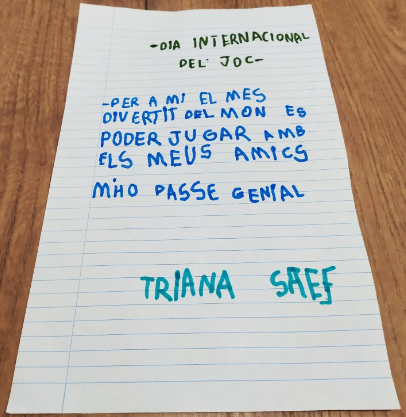 -DIA INTERNACIONAL
DEL JOC-
-PER A MI EL MES
DIVERTIT DEL MON ES
PODER JUGAR AMB
ELS MEUS AMICS
M'HO PASSE GENIAL
TRIANA SAEF